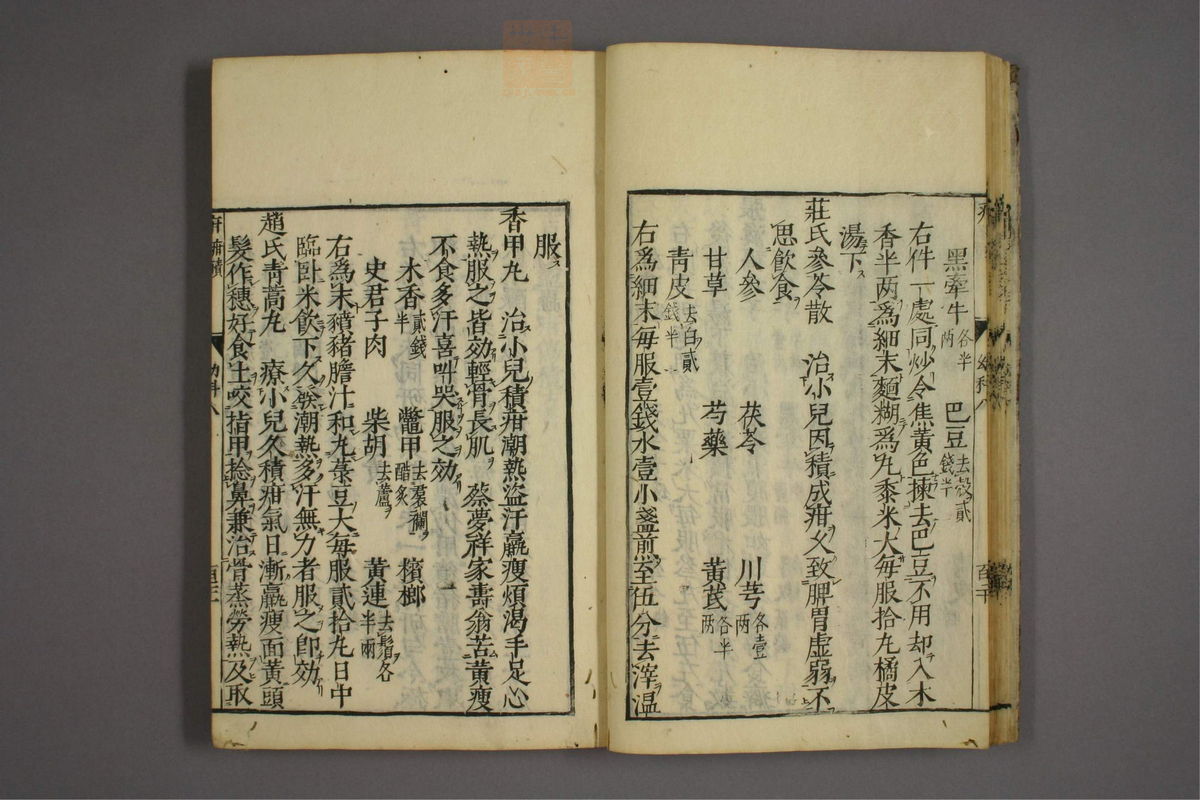 黑牽牛各半兩 巴豆去殼貳錢半
右件一處同炒令焦黃色揀去巴豆不用却入木
香半两爲細末麵糊爲丸黍米大每服拾丸橘皮
湯下
莊氏參苓散 治小兒因積成疳久致脾胃虛弱不
思飲食
人參 茯苓 川芎各壹两
甘草 芍藥 黃芪各半两
青皮去白貳錢半
右爲細末每服壹錢水壹小盞煎至伍分去滓溫
服
香甲丸 治小兒積疳潮熱盜汗羸瘦煩渴手足心
熱服之皆効輕骨長肌 蔡夢祥家壽翁苦黃瘦
不食多汗喜呌哭服之効
木香貳錢半 鼈甲去裙襴醋炙 檳榔
史君子肉 柴胡去蘆 黃連去鬚各半兩
右爲末豬膽汁和丸菉豆大每服貳拾丸日中
臨卧米飲下久發潮熱多汗無力者服之即効
趙氏靑蒿丸 療小兒久積疳氣日漸羸瘦面黃頭
髮作穗好食土咬指甲捻鼻兼治骨蒸勞熱及取
幼科八